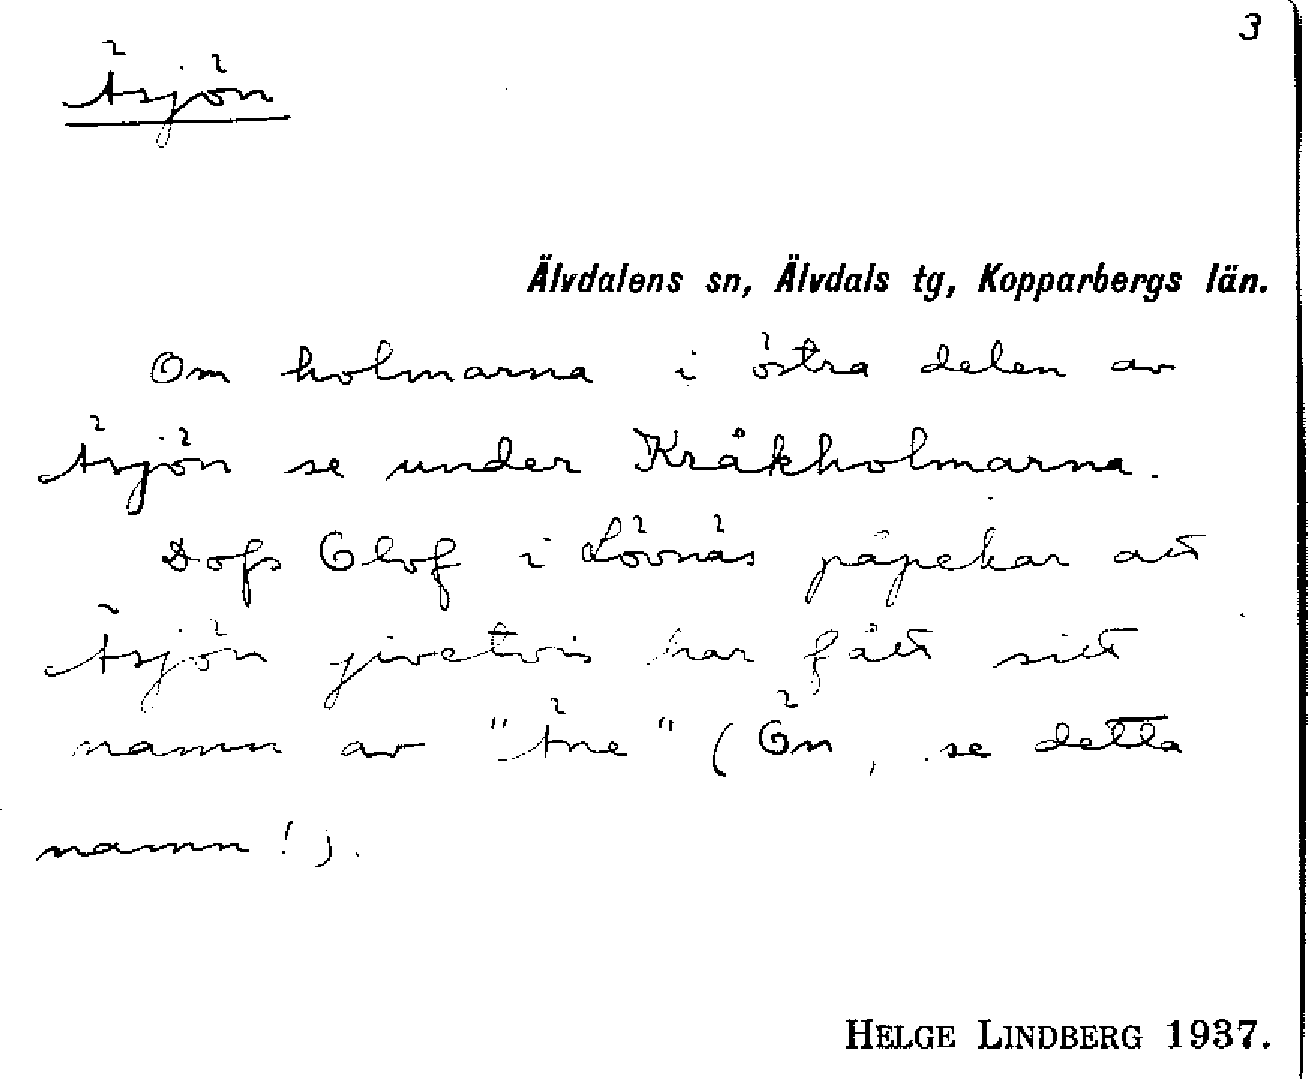 3
Äsjön
Älvdalens sn, Älvdals tg, Kopparbergs län.
Om holmarna i östra delen av
Äsjön se under Kråkholmarna.
Dofs Olof i Lövnäs påpekar att
Äsjön givetvis har fått sitt
namn av "Äne" (Ön, se detta
namn!).
HELGE LINDBERG 1937.